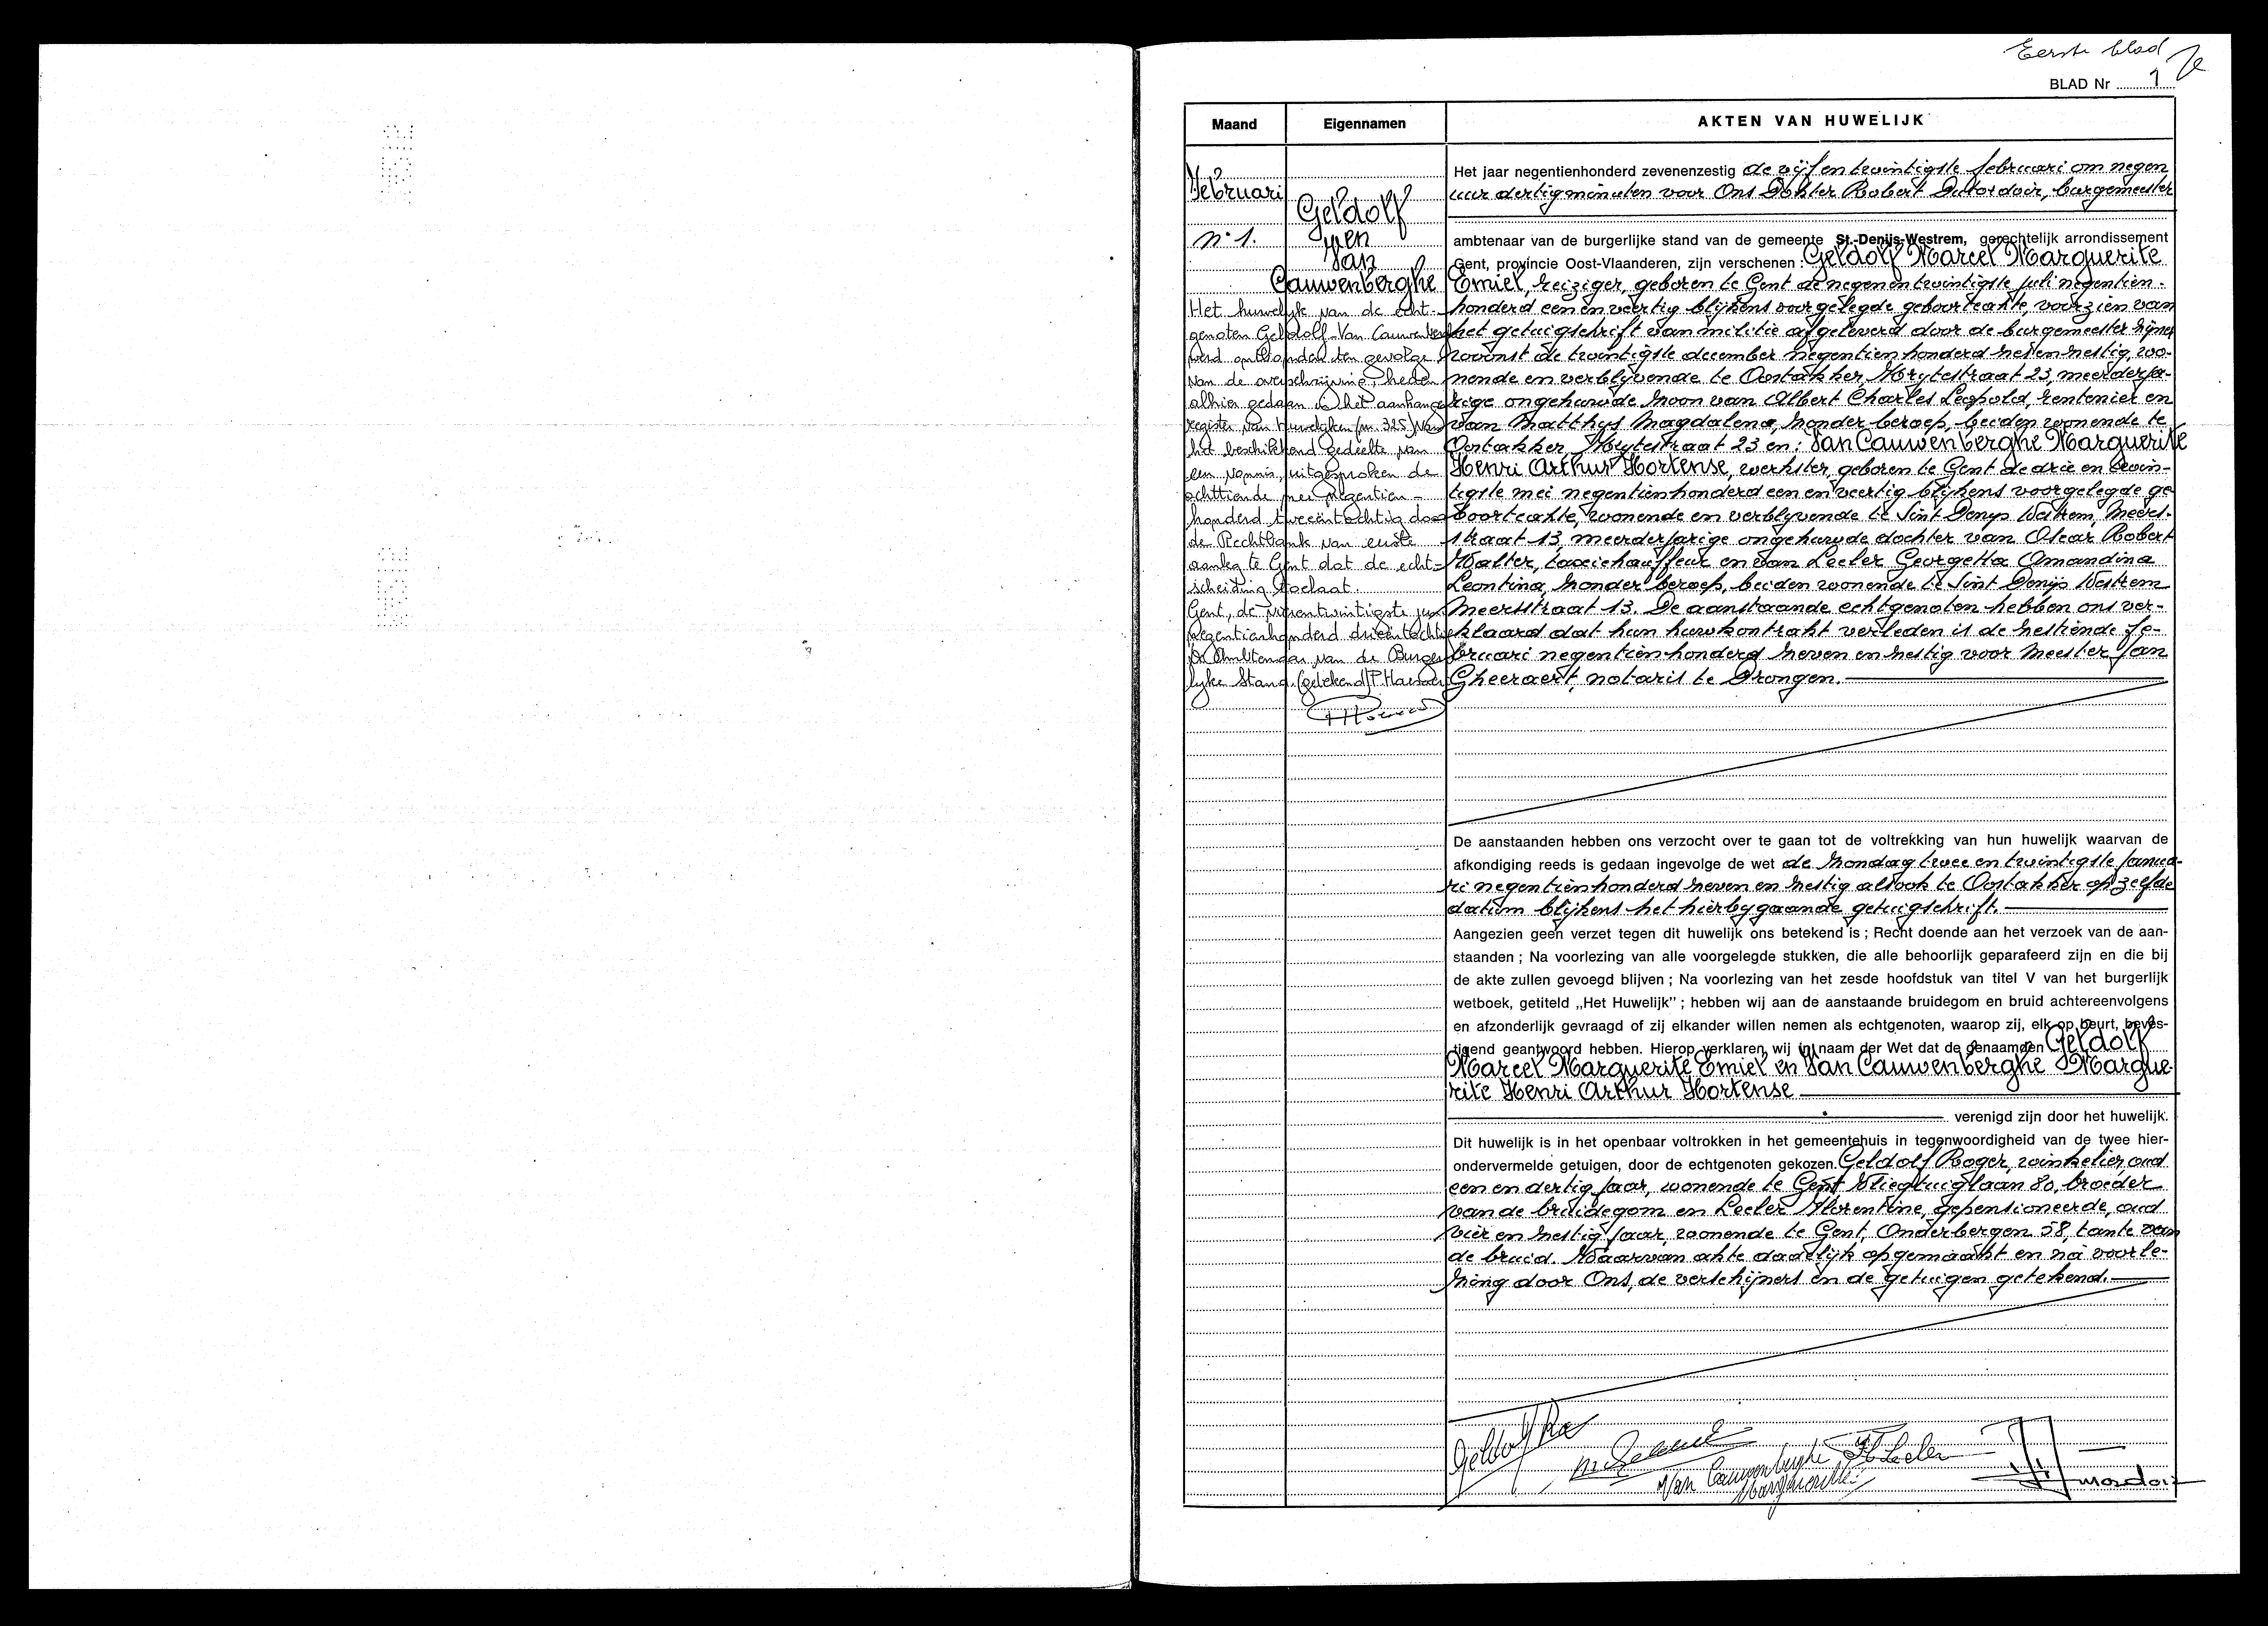 Eerste blad
BLAD Nr 1
Maand
Eigennamen
AKTEN VAN HUWELIJK
Februari
n° 1.
Geldolf
en
Van
Cauwenberghe
Het huwelijk van de echt-
genoten Geldolf-Van Cauwenberghe
werd ontbonden ten gevolge
van de overschrijving, heden
alhier gedaan in het aanhangs
register van huwelijken (nr. 325) van
het beschikkend gedeelte van
een vonnis, uitgesproken de
achttiende mei negentien-
honderd tweeëntachtig door
de Rechtbank van eerste
aanleg te Gent dat de echt-
scheiding toelaat.
Gent, de juni
negentienhonderd drieëntachtig
De Ambtenaar van de Burger
lijke Stand (getekend)
Het jaar negentienhonderd zevenenzestig de vijf en twintigste februari om negen
uur dertig minuten voor Ons Dokter Robert Dutordoir, burgemeester
ambtenaar van de burgerlijke stand van de gemeente St.-Denijs-Westrem, gerechtelijk arrondissement
Gent, provincie Oost-Vlaanderen, zijn verschenen : Geldolf Marcel Marguerite
Emiel, reiziger, geboren te Gent de negen en twintigste juli negentien-
honderd een en veertig blijkens voorgelegde geboorteakte, voorzien van
het getuigschrift van militie afgeleverd door de burgemeester zijner
woonst de twintigste december negentien honderd zes en zestig, woo-
nende en verblijvende te Oostakker, straat 23, meerderja-
rige ongehuwde zoon van Albert Charles Leopold, rentenier en
van Matthys Magdalena, zonder beroep, beiden wonende te
Oostakker straat 23 en : Van Cauwenberghe Marguerite
Henri Arthur Hortense, werkster, geboren te Gent de drie en twin-
tigste mei negentienhonderd een en veertig blijkens voorgelegde ge
boorteakte, wonende en verblijvende te Sint Denijs Westrem, Meers-
straat 13, meerderjarige ongehuwde dochter van Oscar Robert
Walter, taxichauffeur en van Leeler Georgetta Amandina
Leontina, zonder beroep, beiden wonende te Sint Denijs Westrem
Meersstraat 13. De aanstaande echtgenoten hebben ons ver-
klaard dat hun huwkontrakt verleden is de zestiende fe-
bruari negentienhonderd zeven en zestig voor Meester Jan
Gheeraert, notaris te Drongen.
De aanstaanden hebben ons verzocht over te gaan tot de voltrekking van hun huwelijk waarvan de
afkondiging reeds is gedaan ingevolge de wet de zondag twee en twintigste janua-
ri negentienhonderd zeven en zestig alsook te Oostakker op zelfde
datum blijkens het hierbygaande getuigschrift.
Aangezien geen verzet tegen dit huwelijk ons betekend is ; Recht doende aan het verzoek van de aan-
staanden ; Na voorlezing van alle voorgelegde stukken, die alle behoorlijk geparafeerd zijn en die bij
de akte zullen gevoegd blijven ; Na voorlezing van het zesde hoofdstuk van titel V van het burgerlijk
wetboek, getiteld „Het Huwelijk" ; hebben wij aan de aanstaande bruidegom en bruid achtereenvolgens
en afzonderlijk gevraagd of zij elkander willen nemen als echtgenoten, waarop zij, elk op beurt, beves-
tigend geantwoord hebben. Hierop verklaren wij in naam der Wet dat de genaamden Geldolf
Marcel Marguerite Emiel en Van Cauwenberghe Margue-
rite Henri Arthur Hortense
verenigd zijn door het huwelijk.
Dit huwelijk is in het openbaar voltrokken in het gemeentehuis in tegenwoordigheid van de twee hier-
ondervermelde getuigen, door de echtgenoten gekozen. Geldolf Roger, winkelier, oud
een en dertig jaar, wonende te Gent Vliegtuiglaan 80, broeder
van de bruidegom en Leeler Florentine, gepensioneerde, oud
vier en zestig jaar, wonende te Gent, Onderbergen 58, tante van
de bruid. Waarvan akte dadelijk opgemaakt en na voorle-
zing door Ons, de verschijners en de getuigen getekend.
Geldolf Ro
Van Cauwenberghe
Marguerite
Fl Leeler